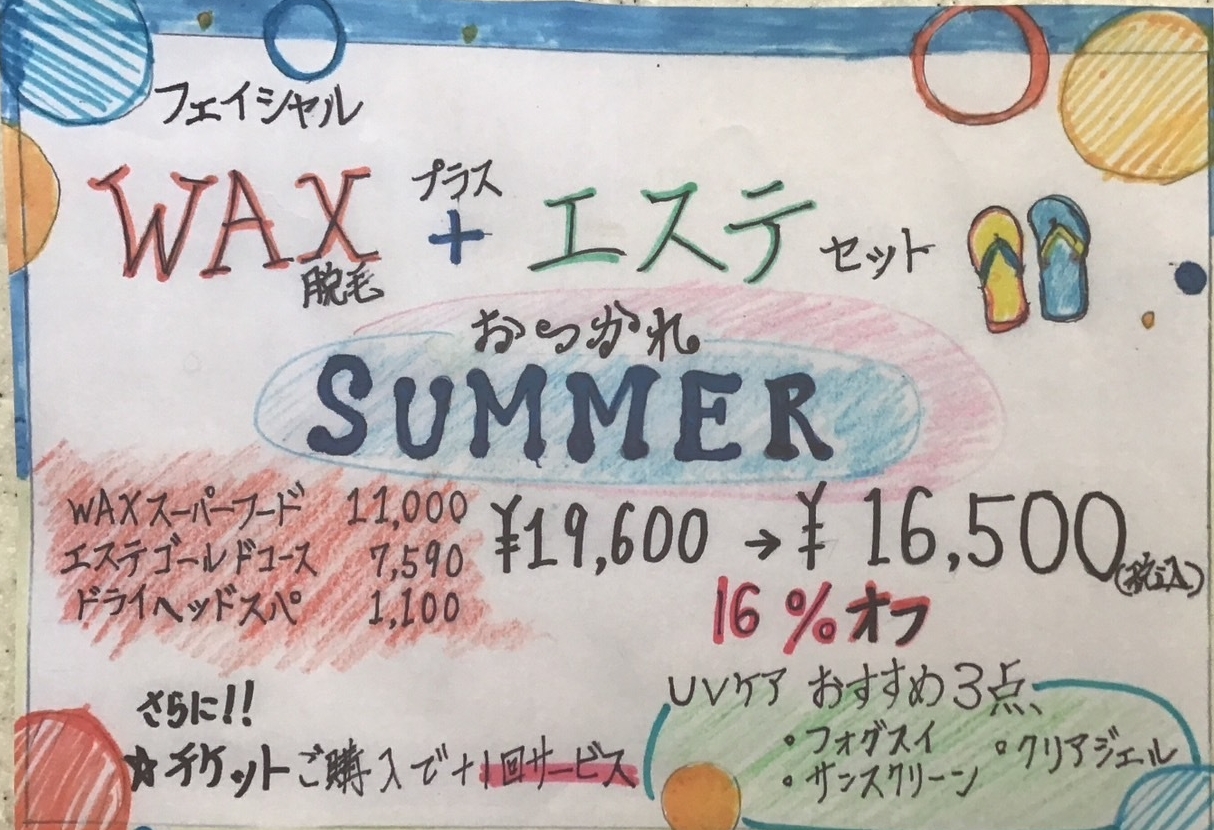 フェイシャル
WAX プラス + エステ セット
脱毛
おつかれ
SUMMER
WAXスーパーフード 11,000
エステゴールドコース 7,590
ドライヘッドスパ 1,100
¥19,600 → ¥16,500(税込)
16%オフ
さらに!!
☆チケットご購入で+1回サービス
UVケア おすすめ3点
・フォグスイ ・クリアジェル
・サンスクリーン